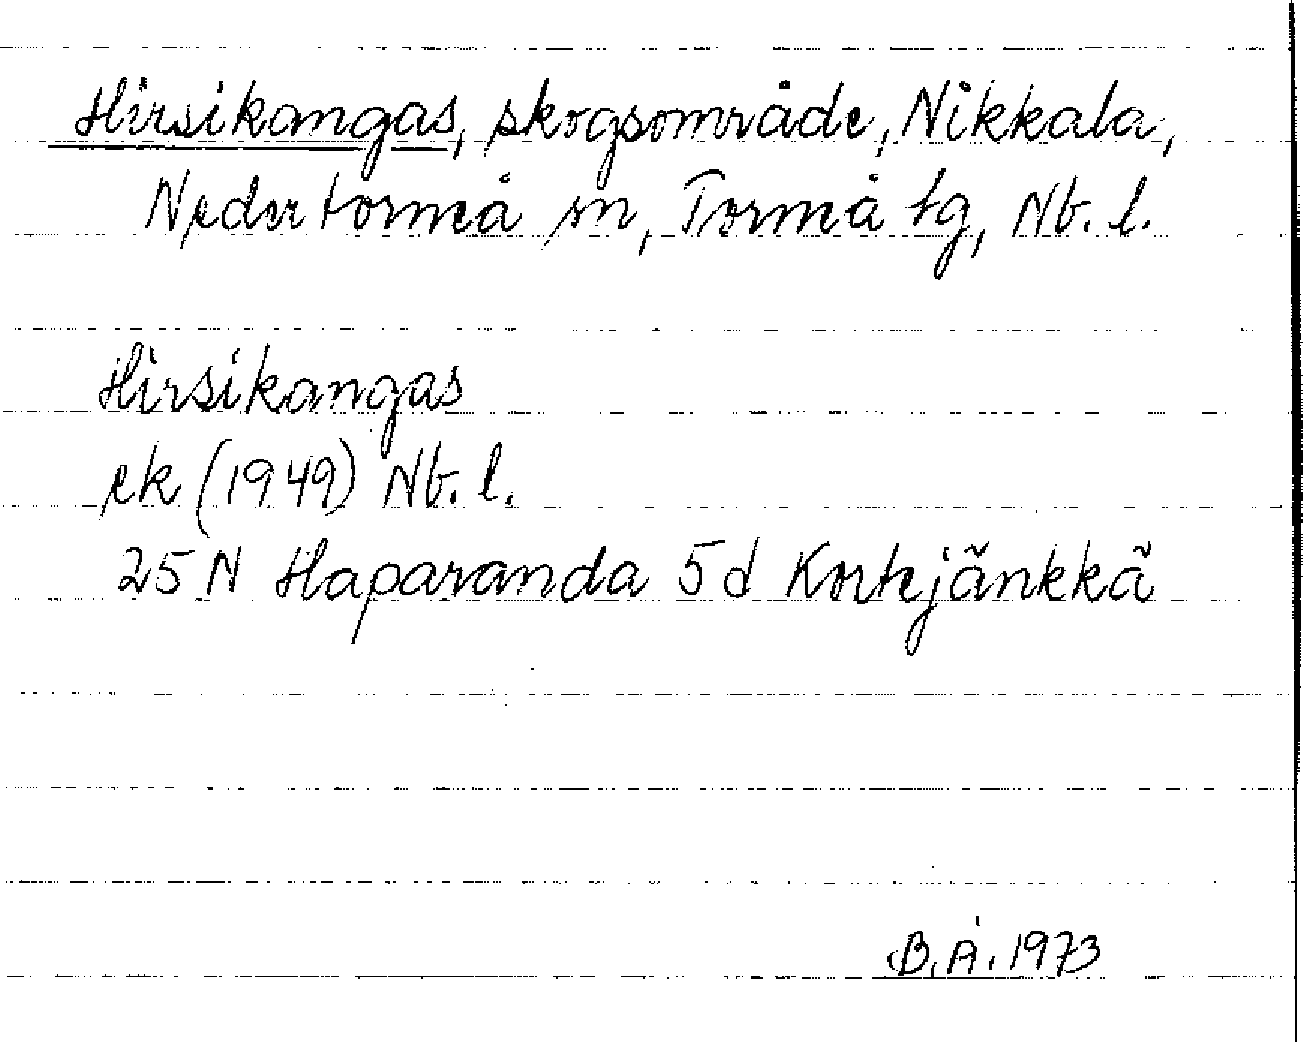 Hirsikangas, skogsområde, Nikkala,
Nedertorneå sn, Torneå tg, Nb. l.
Hirsikangas
ek (1949) Nb. l.
25 N Haparanda 5d Korhijänkkä
B. Å. 1973